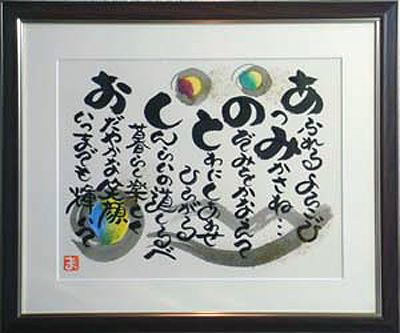 あふれるよろこび
つみかさね…
のぞみをかなえて
とわにしあわせ
ひろがる
しんらいの道しるべ
暮らし楽しく
おだやかな笑顔
いつまでも輝いて
ま